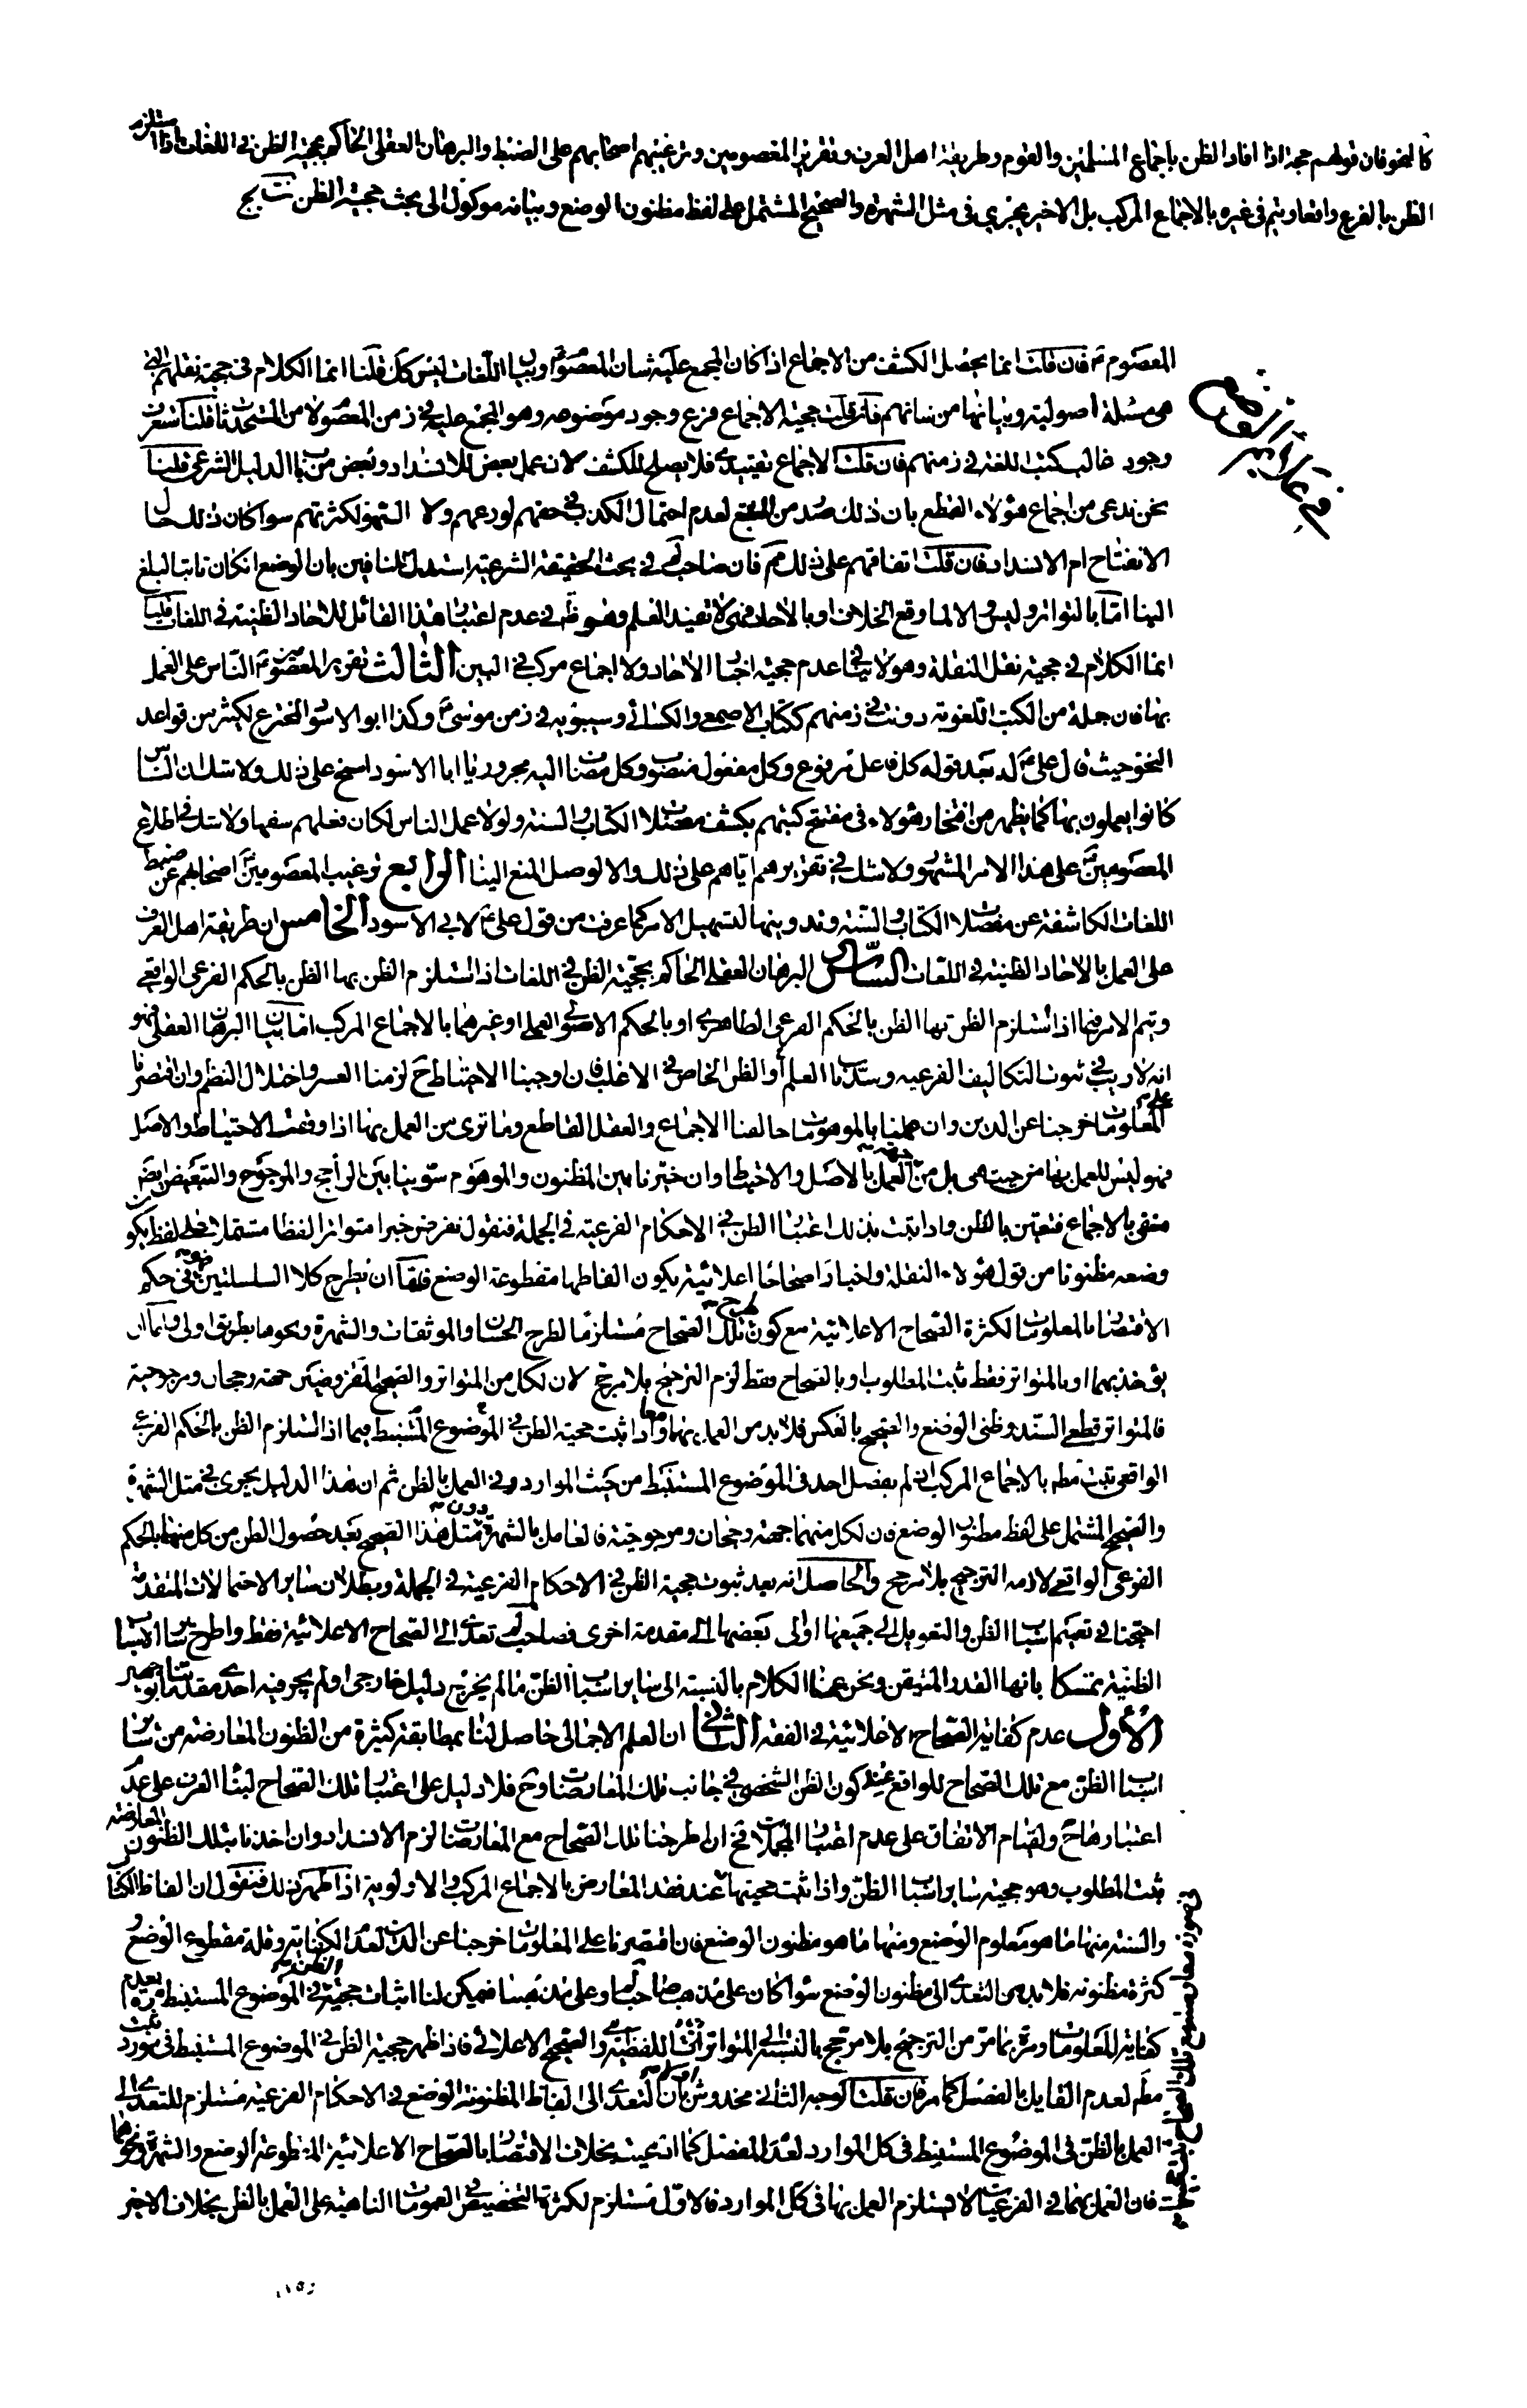 كالنحو فان قولهم حجة اذا افاد الظن باجماع المسلمين والقوم وطريقة اهل العرف وتقرير المعصومين وترغيبهم اصحابهم على الضبط والبرهان العقلى الحاكم بحجية الظن فى اللغات اذا استلزم
الظن بالفرع واقعا ويتم فى غيره بالاجماع المركب بل الاخير يجرى فى مثل الشهرة والصحيح المشتمل على لفظ مظنون الوضع وبيانه موكول الى بحث حجية الظن
المعصوم ع فان قلت انما يحصل الكشف من الاجماع اذا كان المجمع عليه شان المعصوم ع وبيان اللغات ليس كك قلنا انما الكلام فى حجية نقلهم التى
هى مسئلة اصولية وبيانها من شانهم فان قلت حجية الاجماع فرع وجود موضوعه وهو المجمع عليه فى زمن المعصوم ع
وجود غالب كتب اللغة فى زمنهم فان قلت الاجماع تقييدى فلا يصلح للكشف لان عمل بعض للانسداد وبعض من باب الدليل الشرعى قلنا
نحن ندعى من اجماع هؤلاء القطع بان ذلك صدر من المنبع لعدم احتمال الكذب فى حقهم لورعهم ولا السهو لكثرتهم سواء كان ذلك حال
الانفتاح ام الانسداد فان قلت اتفاقهم على ذلك مم فان صاحب لم فى بحث الحقيقة الشرعية استدل للنافين بان الوضع ان كان ثابتا لبلغ
الينا اما بالتواتر وليس والا لما وقع الخلاف او بالاحاد فهى لا تفيد العلم وهو ظ فى عدم اعتبار هذا القائل للاحاد الظنية فى اللغات قلنا
انما الكلام فى حجية نقل النقلة وهو لا ينافى عدم حجية اخبار الاحاد ولا اجماع مركب فى البين الثالث تقرير المعصومين ع الناس على العمل
بها فان جملة من الكتب اللغوية دونت فى زمنهم ككتاب الاصمعى والكسائى وسيبويه فى زمن موسى ع وكذا ابو الاسود المخترع لكثير من قواعد
النحو حيث قال على ع له بعد قوله كل فاعل مرفوع وكل مفعول منصوب وكل مضاف اليه مجرور يا ابا الاسود انح على ذلك ولا شك ان الناس
كانوا يعملون بها كما يظهر من افتخار هؤلاء فى مفتتح كتبهم بكشف معضلات الكتاب والسنة ولولا عمل الناس لكان فعلهم سفها ولا شك فى اطلاع
المعصومين ع على هذا الامر المشهور ولا شك فى تقريرهم اياهم على ذلك والا لوصل المنع الينا الرابع ترغيب المعصومين ع اصحابهم عن ضبط
اللغات الكاشفة عن معضلات الكتاب والسنة وتدوينها لتسهيل الامر كما عرفت من قول على ع لابى الاسود الخامس ان طريقة اهل العرف
على العمل بالاحاد الظنية فى اللغات السادس البرهان العقلى الحاكم بحجية الظن فى اللغات اذا استلزم الظن بها الظن بالحكم الفرعى الواقعى
ويتم الامر فيما اذا استلزم الظن بها الظن بالحكم الفرعى الظاهرى او بالحكم الاصولى العملى او غيرهما بالاجماع المركب اما بيان البرهان العقلى فهو
انه لا ريب فى ثبوت التكاليف الفرعية وسد باب العلم او الظن الخاص فى الاغلب فان اوجبنا الاحتياط ح لزمنا العسر واختلال النظم وان اقتصرنا
على المعلومات خرجنا عن الدين وان عملنا بالموهومات خالفنا الاجماع والعقل القاطع وما ترى من العمل بها اذا وقعت الاحتياط والاصل
فهو ليس للعمل بها من حيث هى بل من جهة العمل بالاصل والاحتياط وان خيرنا بين المظنون والموهوم سوينا بين الراجح والمرجوح والتبعيض ايضا
منفى بالاجماع فتعين بالظن واذا ثبت بذلك اعتبار الظن فى الاحكام الفرعية فى الجملة فنقول نفرض خبرا متواترا لفظا مشتملا على لفظ يكون
وضعه مظنونا من قول هؤلاء النقلة واخبارا صحاحا اعلائية يكون الفاظها مقطوعة الوضع فاما ان نطرح كلا السلسلتين فهو فى حكم
الاقتصار بالمعلومات لكثرة الصحاح الاعلائية مع كون طرح تلك الصحاح مستلزما لطرح الحسان والموثقات والشهرة ونحوها بطريق اولى واما ان
يؤخذ بهما او بالمتواتر فقط ثبت المطلوب او بالصحاح فقط لزم الترجيح بلا مرجح لان لكل من المتواتر والصحيح المفروضين جهة رجحان ومرجوحية
فالمتواتر قطعى السند وظنى الوضع والصحيح بالعكس فلا بد من العمل بهما معا واذا ثبت حجية الظن فى الموضوع المستنبط فيما اذا استلزم الظن بالحكم الفرعى
الواقعى ثبت مطم بالاجماع المركب اذ لم يفصل احد فى الموضوع المستنبط من حيث الموارد فى العمل بالظن ثم ان هذا الدليل يجرى فى مثل الشهرة
والصحيح المشتمل على لفظ مظنون الوضع فان لكل منهما جهة رجحان ومرجوحية فالعامل بالشهرة دون مثل هذا الصحيح بعد حصول الظن من كل منهما بالحكم
الفرعى الواقعى لازمه الترجيح بلا مرجح والحاصل انه بعد ثبوت حجية الظن فى الاحكام الفرعية فى الجملة وبطلان ساير الاحتمالات المتقدمة
احتجنا فى تعميم اسباب الظن والتعويل الى جميعها اولى بعضها الى مقدمة اخرى فصاحب لم تعدى الى الصحاح الاعلائية فقط واطرح ساير الاسباب
الظنية تمسكا بانها القدر المتيقن ونحن عممنا الكلام بالنسبة الى ساير اسباب الظن ما لم يخرج دليل خارجى ولم يجر فيه احدى مقدماته بوجهين
الاول عدم كفاية الصحاح الاعلائية فى الفقه الثانى ان العلم الاجمالى حاصل لنا بمطابقة كثيرة من الظنون المعارضة من ساير
اسباب الظن مع تلك الصحاح للواقع عند كون الظن الشخصى فى جانب تلك المعارضات وح فلا دليل على اعتبار تلك الصحاح لبناء العرف على عدم
اعتبارها ح ولقيام الاتفاق على عدم اعتبار المجملات فح ان طرحنا تلك الصحاح مع المعارضات لزم الانسداد وان اخذنا بتلك الظنون المعارضة
ثبت المطلوب وهو حجية ساير اسباب الظن واذا ثبت حجيتها عند فقد المعارض بالاجماع المركب والاولوية اذا ظهر ذلك فنقول ان الفاظ الكتاب
والسنة منها ما هو معلوم الوضع ومنها ما هو مظنون الوضع فان اقتصرنا على المعلومات خرجنا عن الدين لعدم الكفاية وقلة مقطوع الوضع و
كثرة مظنونه فلا بد من التعدى الى مظنون الوضع سواء كان على مذهب صاحب لم او على مذهبنا فيمكن لنا اثبات حجية الظن فى الموضوع المستنبط مرة بعدم
كفاية المعلومات ومرة بما مر من الترجيح بلا مرجح بالنسبة الى المتواتر اللفظى والصحيح الاعلائى فاذا ظهر حجية الظن فى الموضوع المستنبط فى مورد ثبت
مطم لعدم القايل بالفصل كما مر فان قلت الوجه الثانى مخدوش بان التعدى الى الفاظ المظنونة الوضع فى الاحكام الفرعية مستلزم للتعدى الى
العمل بالظن فى الموضوع المستنبط فى كل الموارد لعدم المفصل كما ادعيت بخلاف الاقتصار بالصحاح الاعلائية المقطوعة الوضع والشهرة ونحوهما
فان العمل بهما فى الفرعيات لا يستلزم العمل بها فى كل الموارد فالاول مستلزم لكثرة التخصيص فى العمومات الناهية على العمل بالظن بخلاف الاخير